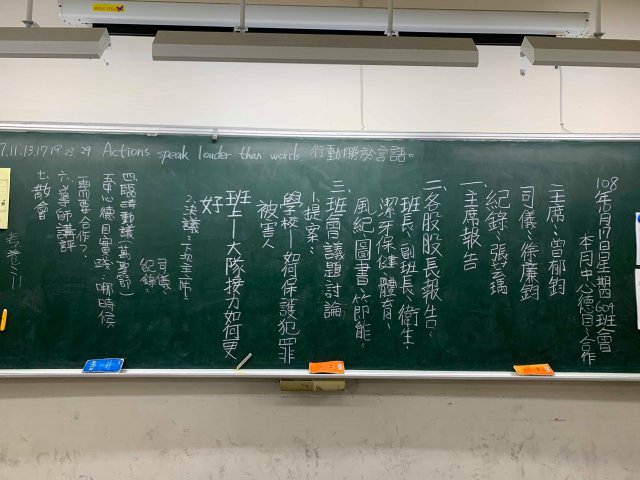 7.11.13.17.19.23.29 Actions speak louder than words. 行動勝於言語。
108年10月17日星期四 604班會
本月中心德目:合作
主席:曾郁鈞
司儀:徐廉鈞
紀錄:張
一、主席報告
二、各股股長報告:
班長、副班長、衛生、
潔牙保健、體育、
風紀、圖書、節能、
三、班會議題討論
1.提案:
學校—如何保護犯罪
被害人
班—大隊接力如何更
好
2.決議:下次主席:
司儀:
紀錄:
四、臨時動議(萬聖節)
五、中心德目實踐:哪時候
需要合作?
六、導師講評
七、散會